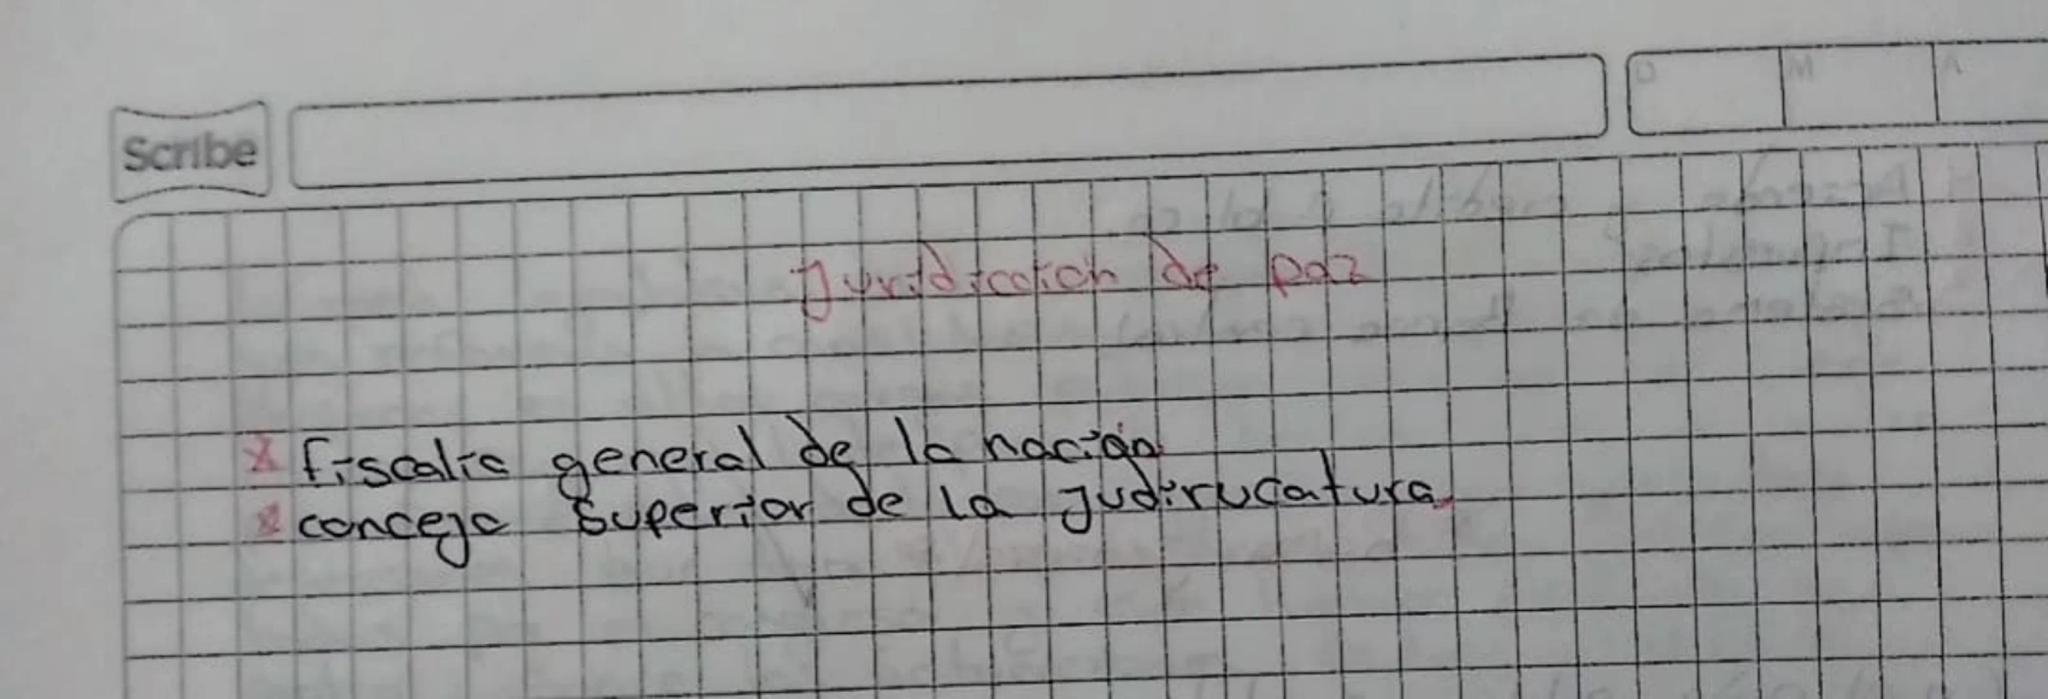 Scribe
D M A
Juridiccion de paz
x fiscalia general de la nación
x conceja superior de la judirucatura